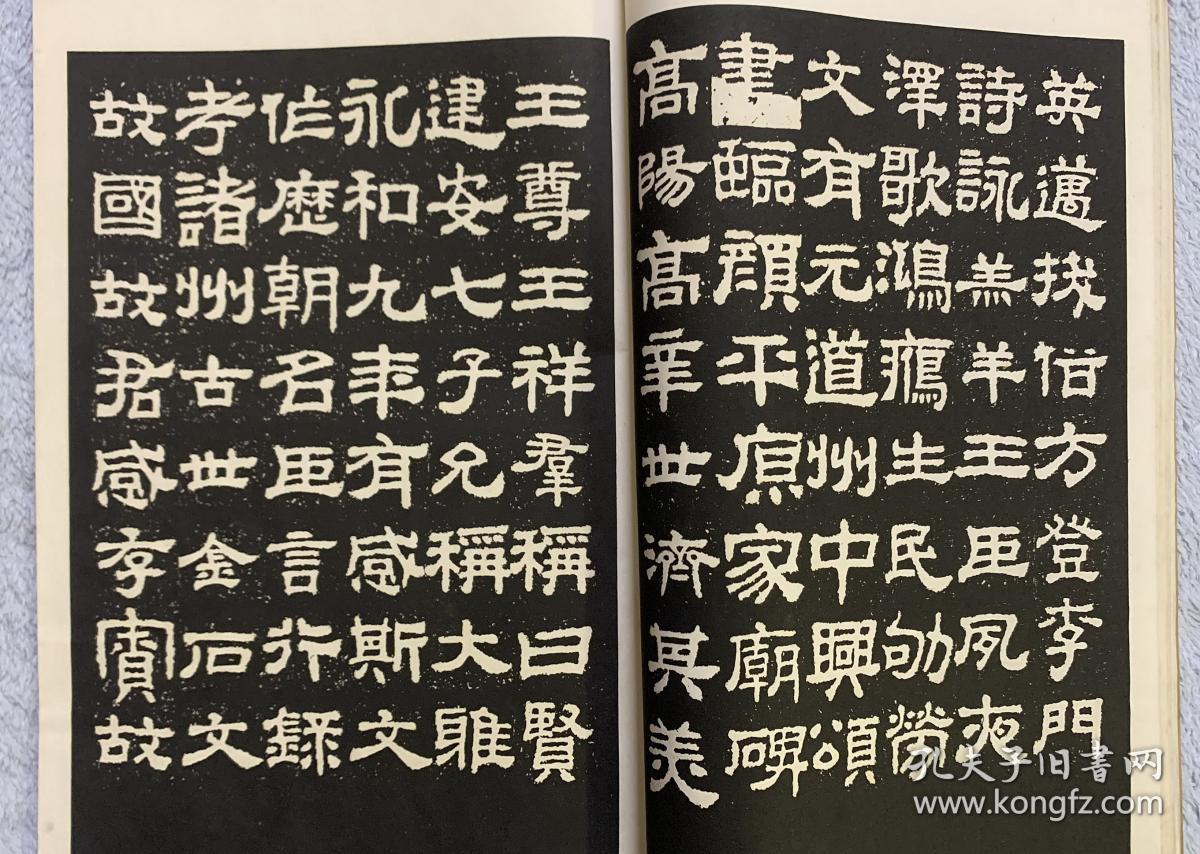 英邁拔俗方登李門
詩詠羔羊王臣夙夜
澤歌鴻雁生民劬勞
文有元道州中興頌
書臨顏平原家廟碑
高陽高辛世濟其美
王尊王祥羣稱曰賢
建安七子允稱大雅
永和九年有感斯文
作歷朝名臣言行錄
考諸州古世金石文
故國故君感孝賓故
孔夫子旧書网
www.kongfz.com